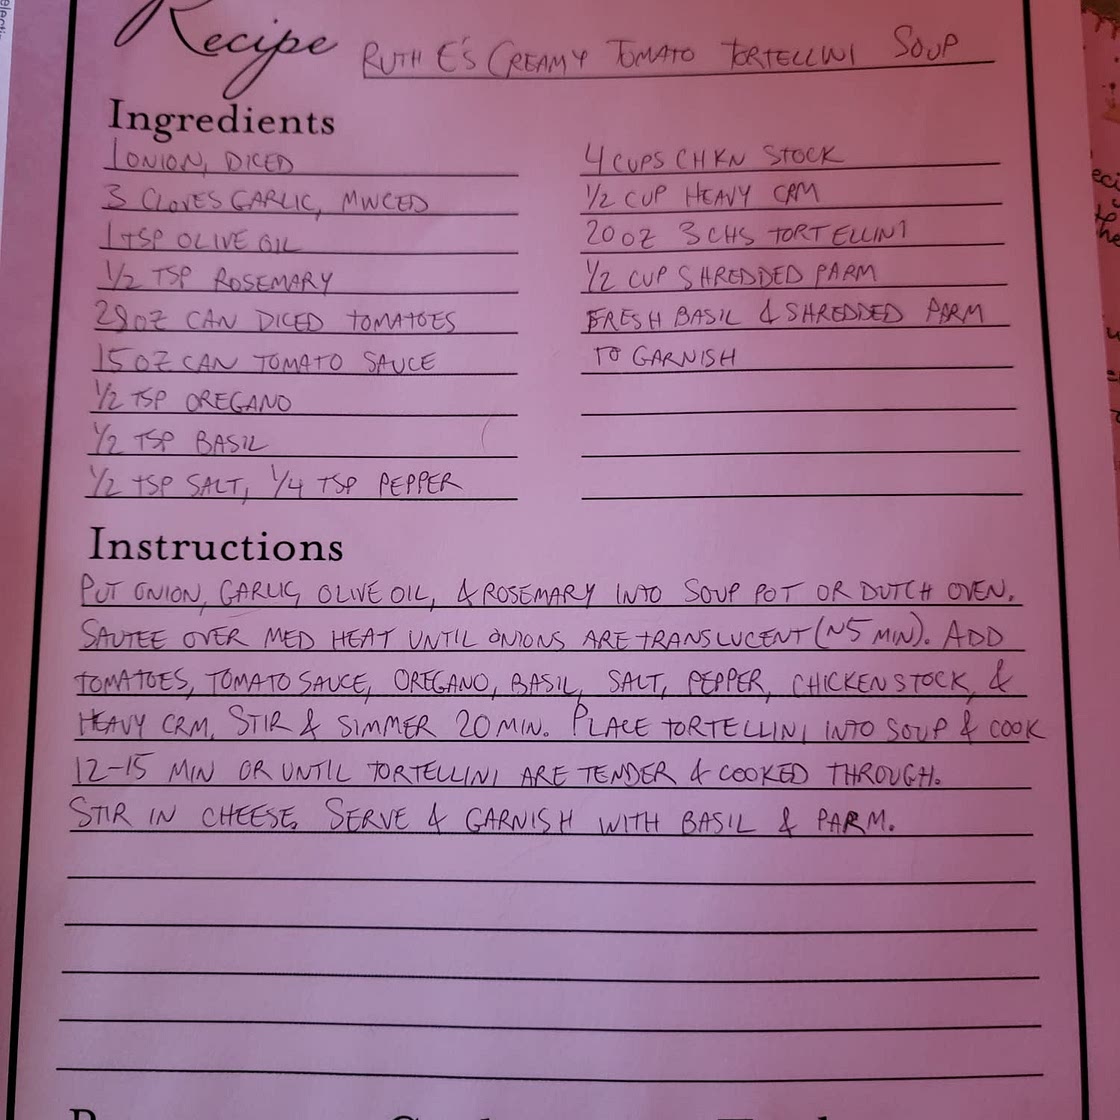 Recipe RUTH E'S CREAMY TOMATO TORTELLINI SOUP
Ingredients
1 ONION, DICED
3 CLOVES GARLIC, MINCED
1 TSP OLIVE OIL
1/2 TSP ROSEMARY
28 OZ CAN DICED TOMATOES
15 OZ CAN TOMATO SAUCE
1/2 TSP OREGANO
1/2 TSP BASIL
1/2 TSP SALT, 1/4 TSP PEPPER
4 CUPS CHKN STOCK
1/2 CUP HEAVY CRM
20 OZ 3 CHS TORTELLINI
1/2 CUP SHREDDED PARM
FRESH BASIL & SHREDDED PARM
TO GARNISH
Instructions
PUT ONION, GARLIC, OLIVE OIL, & ROSEMARY INTO SOUP POT OR DUTCH OVEN.
SAUTEE OVER MED HEAT UNTIL ONIONS ARE TRANSLUCENT (~5 MIN). ADD
TOMATOES, TOMATO SAUCE, OREGANO, BASIL, SALT, PEPPER, CHICKEN STOCK, &
HEAVY CRM. STIR & SIMMER 20 MIN. PLACE TORTELLINI INTO SOUP & COOK
12-15 MIN OR UNTIL TORTELLINI ARE TENDER & COOKED THROUGH.
STIR IN CHEESE. SERVE & GARNISH WITH BASIL & PARM.